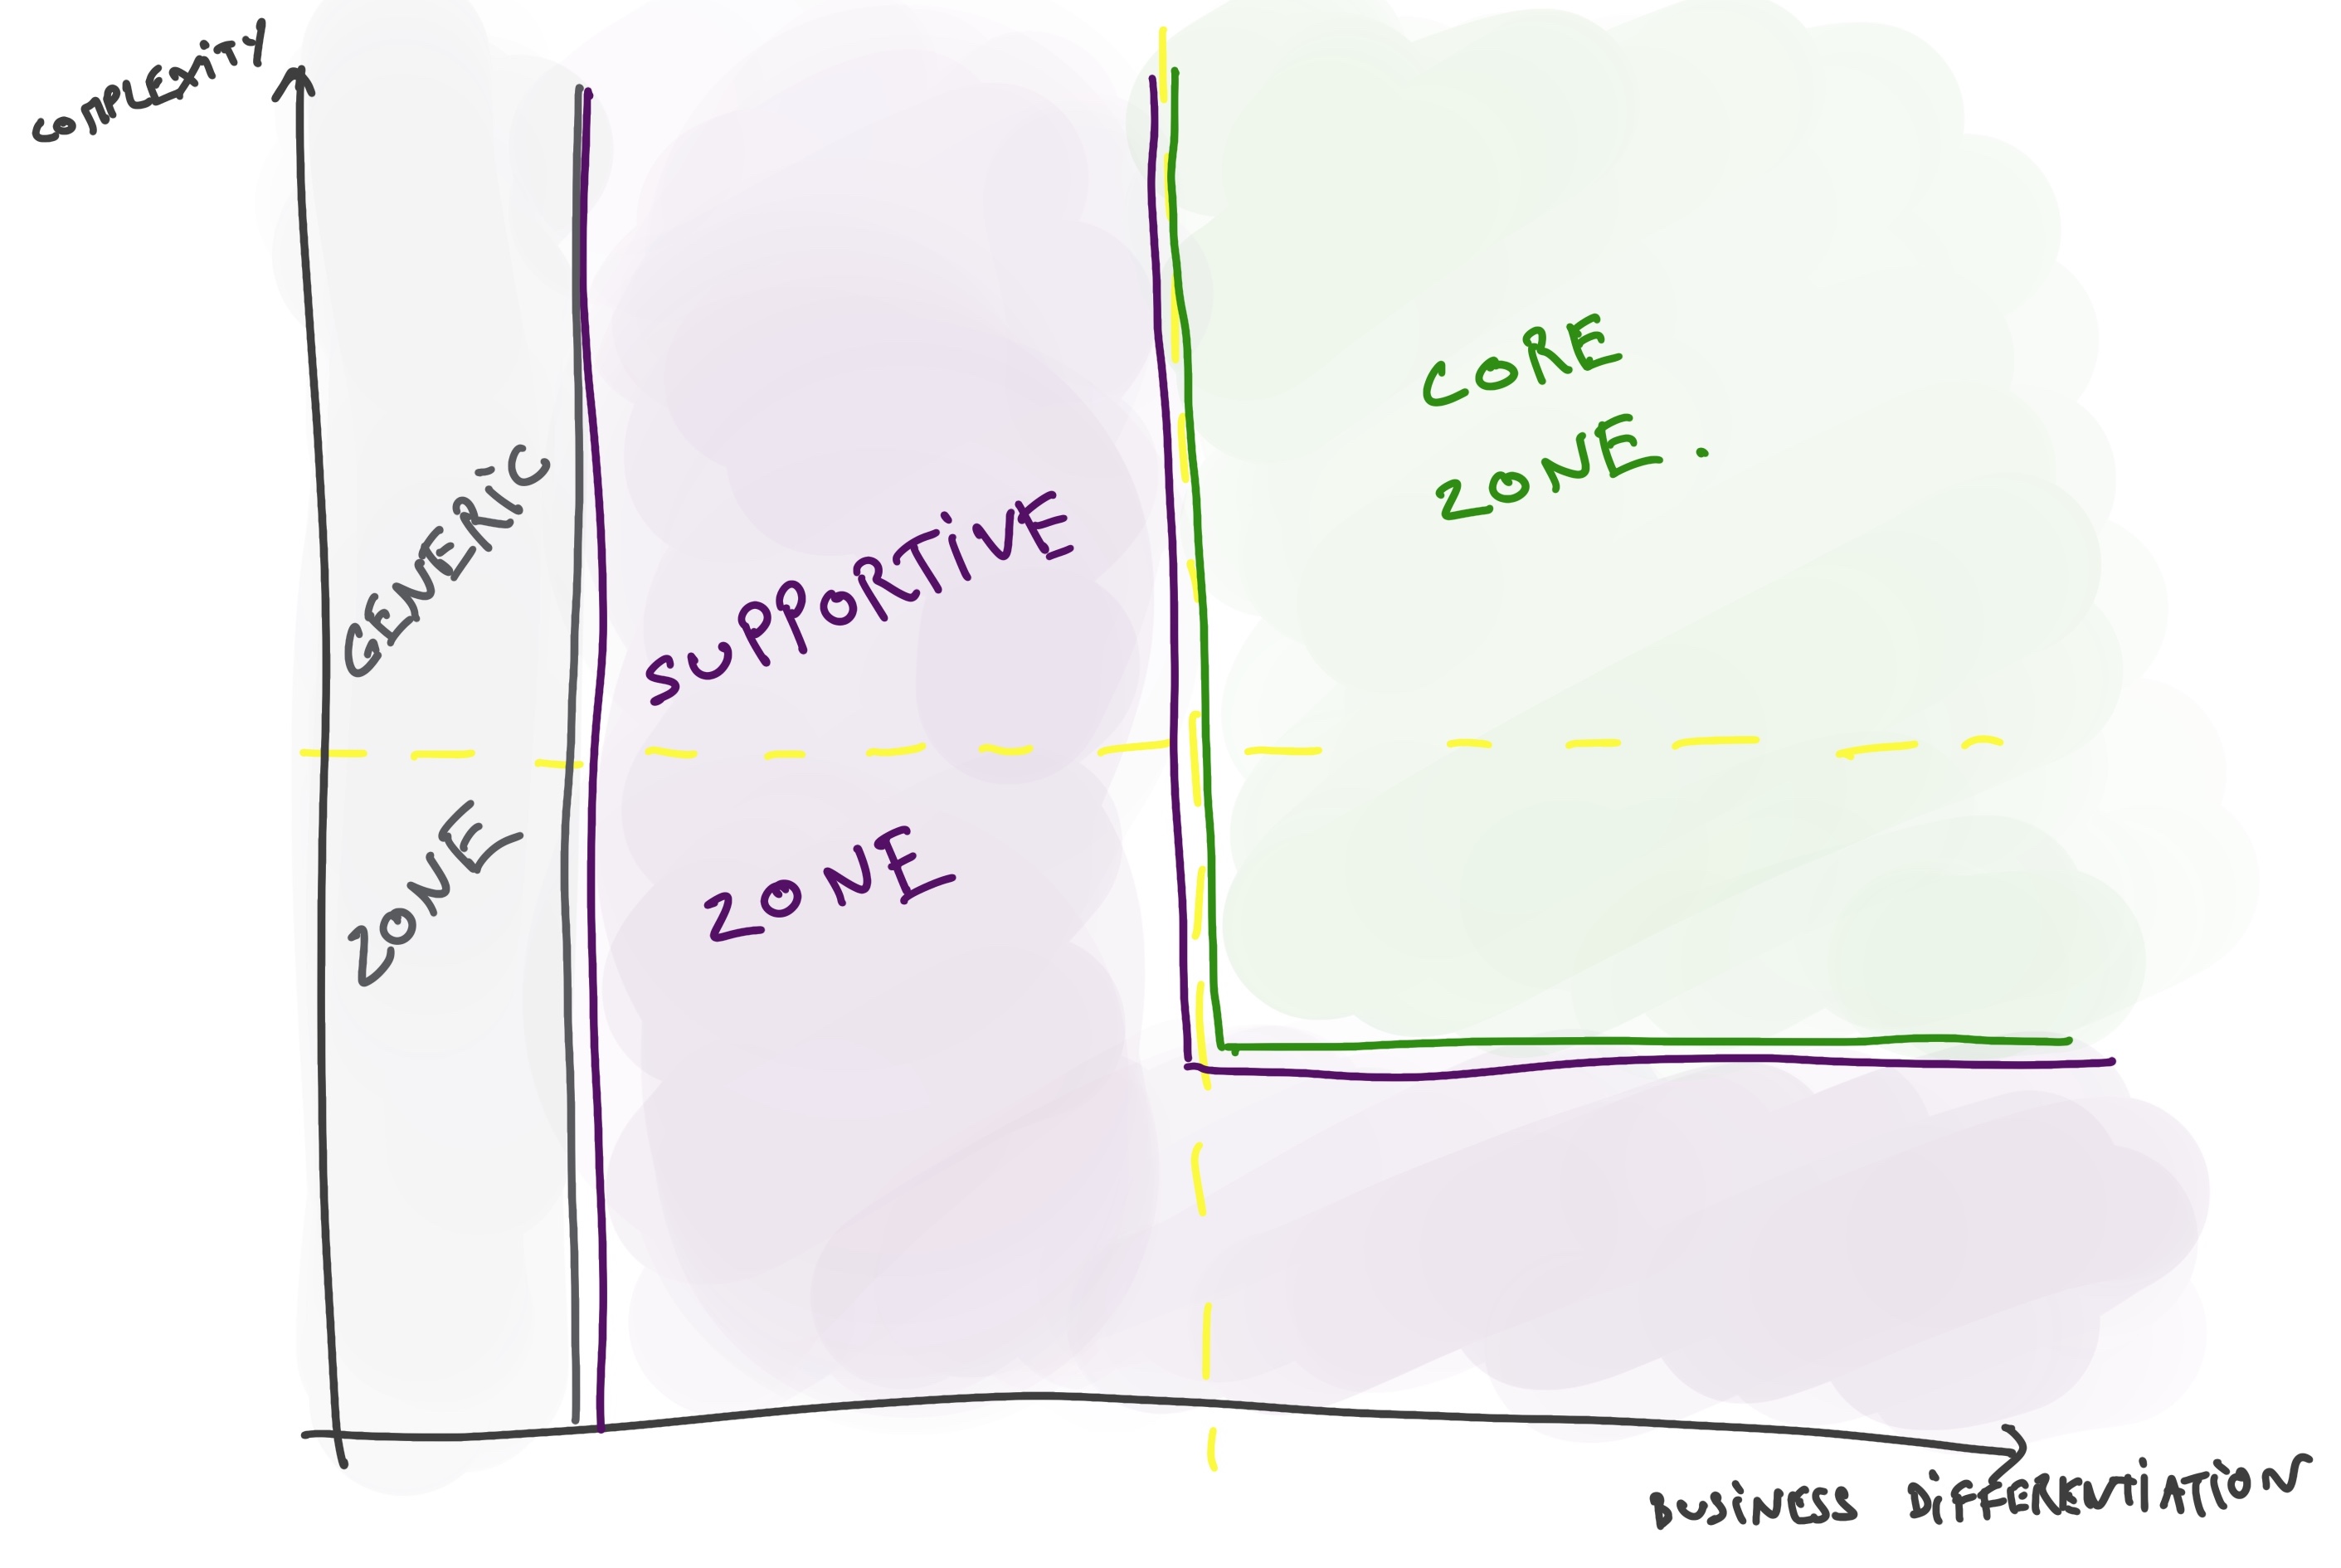 COMPLEXITY
GENERIC
ZONE
SUPPORTIVE
ZONE
CORE
ZONE.
BUSINESS DIFFERENTIATION